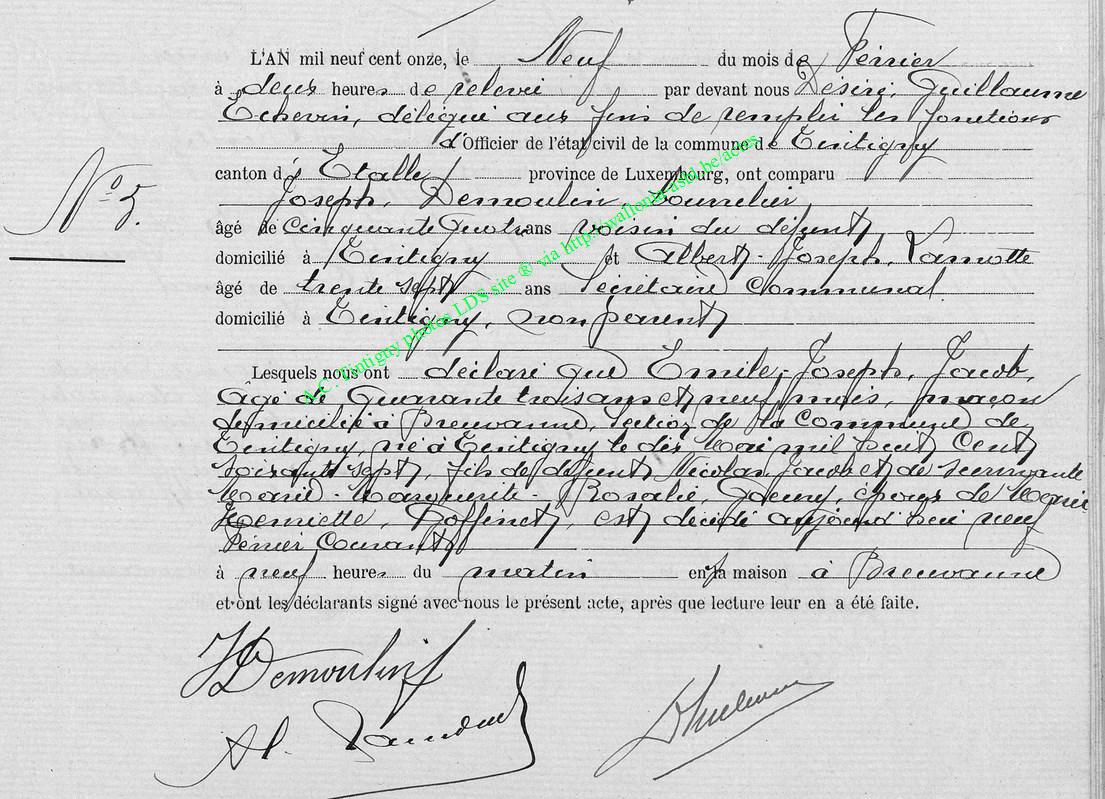 L'AN mil neuf cent onze, le Neuf du mois de Février
à deux heures de relevée par devant nous Désiré, Guillaume
Echevin, délégué aux fins de remplir les fonctions
d'Officier de l'état civil de la commune de Tintigny
canton d'Etalle province de Luxembourg, ont comparu
Joseph, Demoulin, bourrelier,
N° 5.
âgé de Cinquante Quatre ans voisin du défunt
domicilié à Tintigny et Albert-Joseph, Lamotte
âgé de trente sept ans Sécrétaire Communal
domicilié à Tintigny, non parent
Lesquels nous ont déclaré que Emile-Joseph, Jacob,
Agé de Quarante trois ans et neuf mois, maçon
domicilié à Breuvanne, section de la Commune de
Tintigny, né à Tintigny le dix Mai mil huit Cent
soixante sept, fils de défunt Nicolas Jacob et de survivante
Marie-Marguerite-Rosalie, époux de Marie
Henriette, Poffinet, est décédé aujourd'hui neuf
Février Courant
à neuf heures du matin en sa maison à Breuvanne
et ont les déclarants signé avec nous le présent acte, après que lecture leur en a été faite.
J Demoulin
Al. Lamotte
DGuillaume
A.C. Tintigny photos LDS site ® via http://wallonia-asbl.be/actes